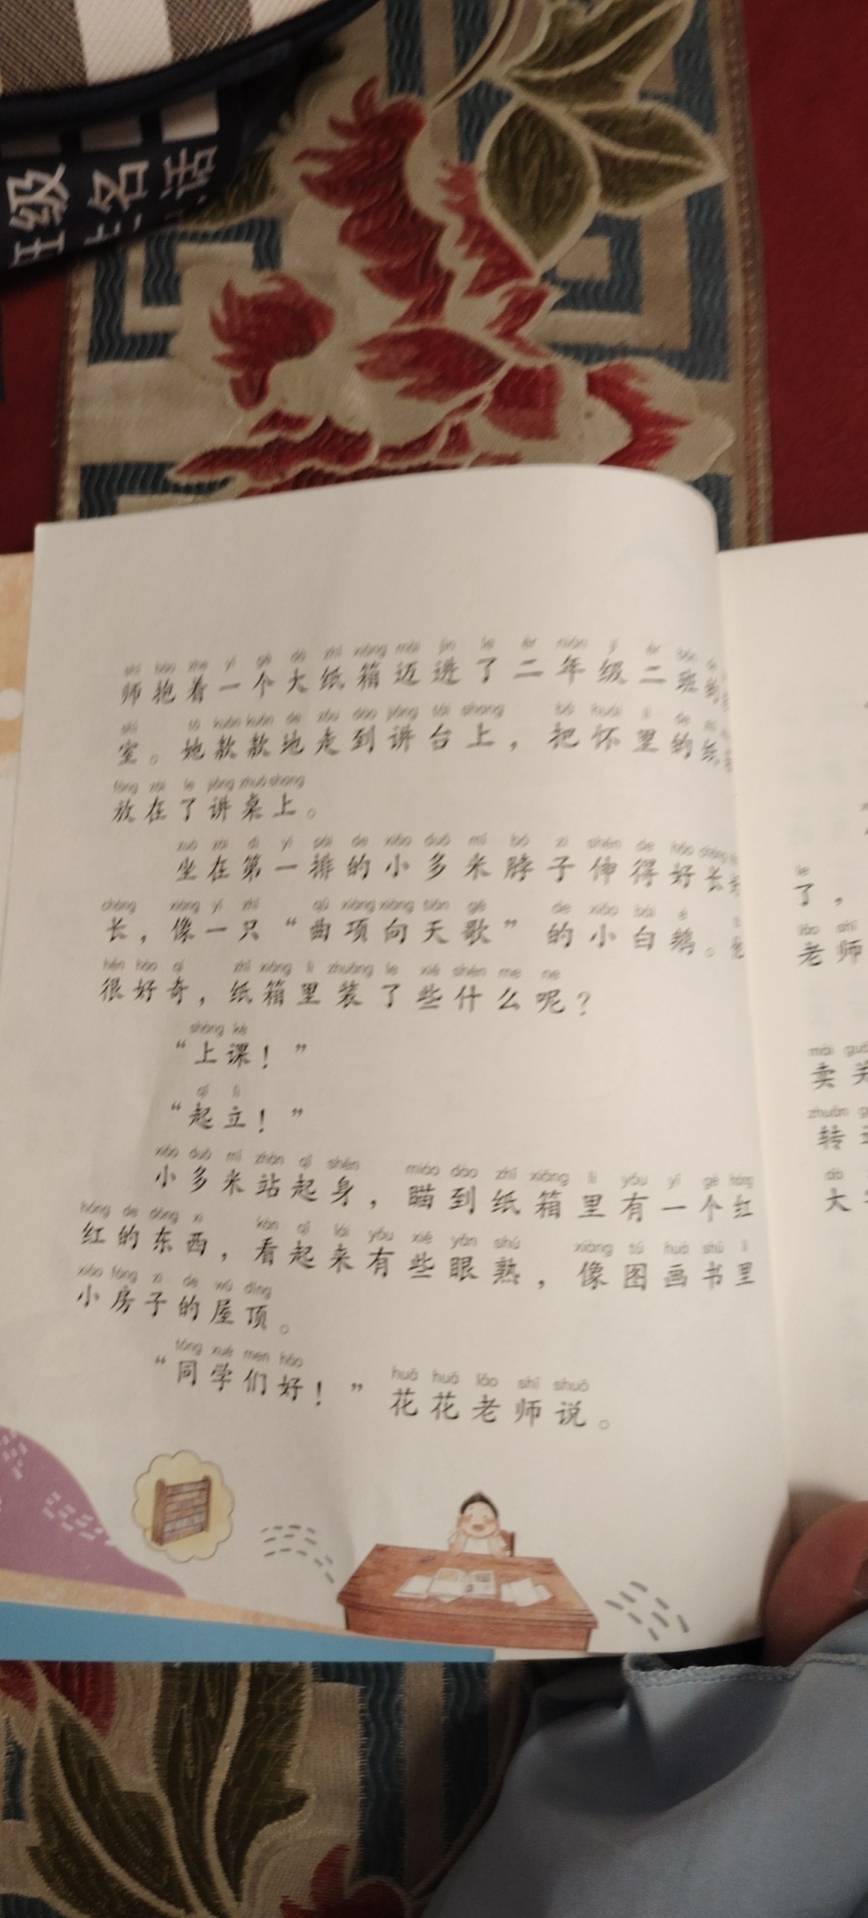 级
名
话
shī bào zhe yí gè dà zhǐ xiāng mài jìn le èr nián jí èr bān
师抱着一个大纸箱迈进了二年级二班
shì tā kuǎn kuǎn de zǒu dào jiǎng tái shang bǎ huái li de
室。她款款地走到讲台上，把怀里的纸
fàng zài le jiǎng zhuō shang
放在了讲桌上。
zuò zài dì yī pái de xiǎo duō mǐ bó zi shēn de hǎo cháng
坐在第一排的小多米脖子伸得好长
cháng xiàng yì zhī qū xiàng xiàng tiān gē de xiǎo bái é
长，像一只“曲项向天歌”的小白鹅。
hěn hào qí zhǐ xiāng li zhuāng le xiē shén me ne
很好奇，纸箱里装了些什么呢？
shàng kè
“上课！”
qǐ lì
“起立！”
xiǎo duō mǐ zhàn qǐ shēn miáo dào zhǐ xiāng li yǒu yí gè hóng
小多米站起身，瞄到纸箱里有一个红
hóng de dōng xi kàn qǐ lái yǒu xiē yǎn shú xiàng tú huà shū li
红的东西，看起来有些眼熟，像图画书里
xiǎo fáng zi de wū dǐng
小房子的屋顶。
tóng xué men hǎo huā huā lǎo shī shuō
“同学们好！”花花老师说。
le
了，
lǎo shī
老师
mài
卖
zhuàn
转
dà
大